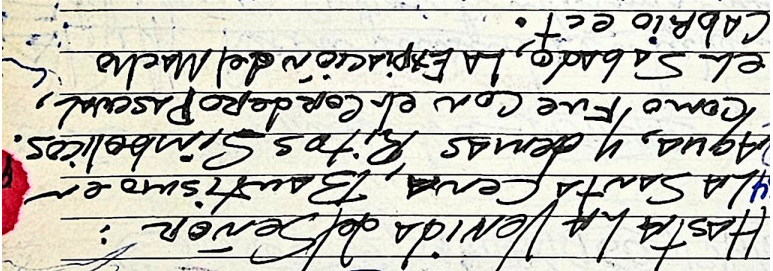 HASTA LA VENIDA del SEÑOR :
LA SANTA CENA, BAUTISMO en
AGUA, y demas Ritos Simbolicos.
Como Fue Con el Cordero Pascual,
el Sabado, LA Expiación del Macho
CABRIO ect.